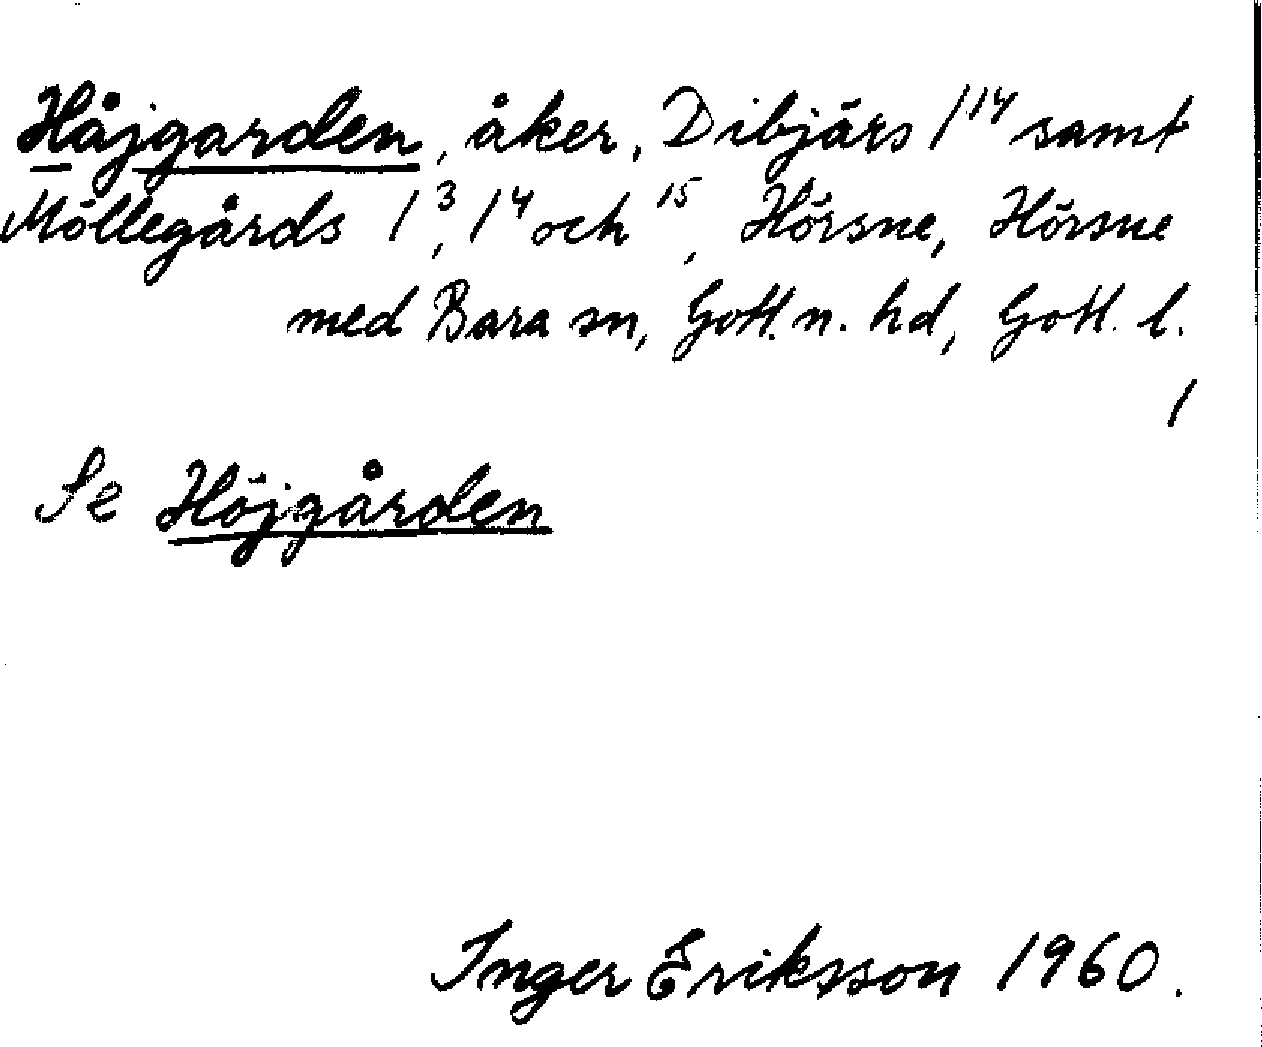 Håjgarden, åker, Dibjärs 1¹⁴ samt
Möllegårds 1³, 1⁴ och ¹⁵, Hörsne, Hörsne
med Bara sn, Gotl. n. hd, Gotl. l.
/
Se Höjgården
Inger Eriksson 1960.